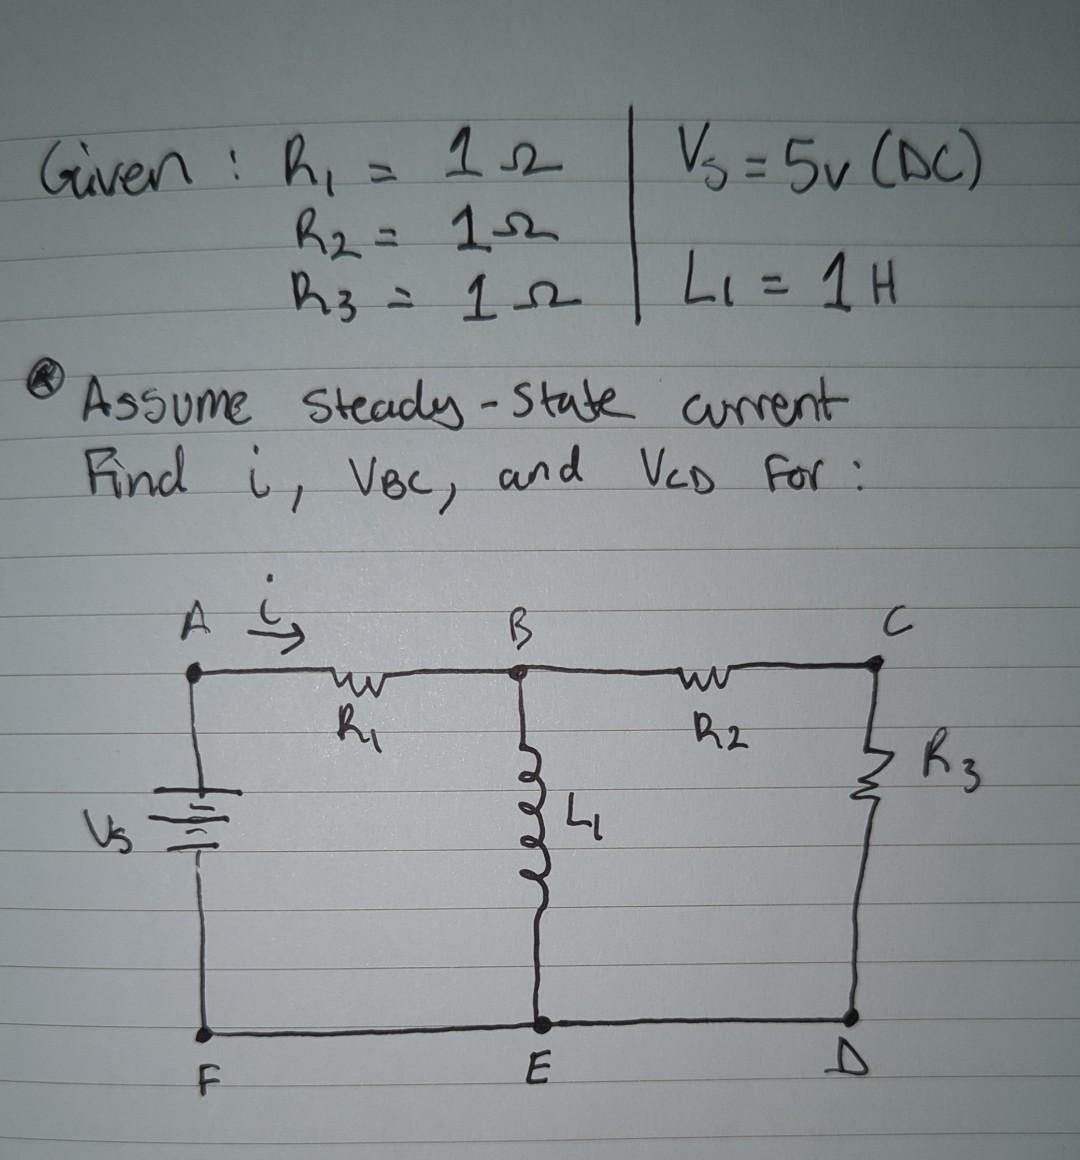 Given : R₁ = 1 Ω
R2 = 1 Ω
R3 = 1 Ω
Vs = 5v (DC)
L1 = 1 H
Assume steady-state current
Find i, VBC, and VCD for :
A i B C
R₁ R2 R3
Vs L1
F E D